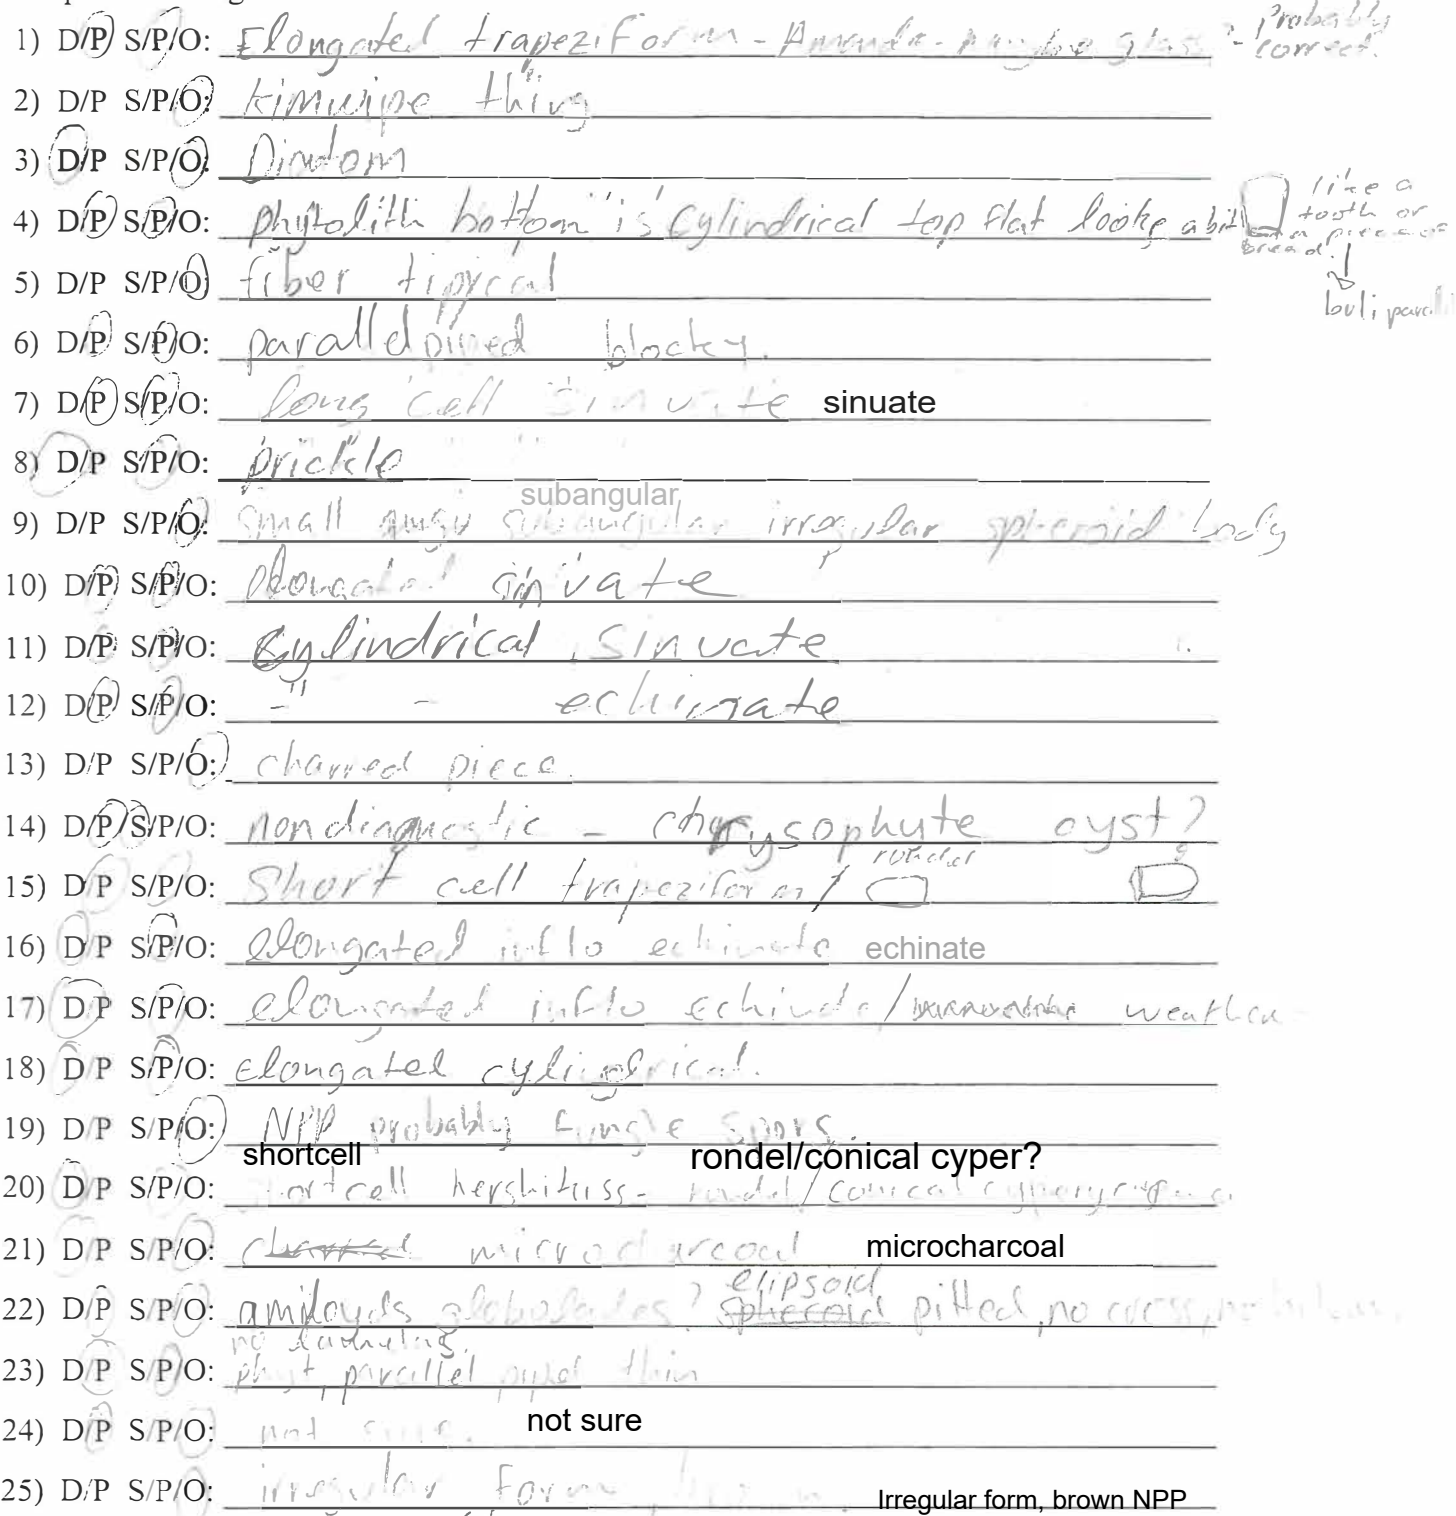 1) D/P S/P/O: Elongated trapeziform - Amanda - maybe glass? - Probably correct.
2) D/P S/P/O: Kimwipe thing
3) D/P S/P/O: Diatom
4) D/P S/P/O: phytolith bottom is cylindrical top flat looke a bit like a tooth or a piece of bread.
buli parall
5) D/P S/P/O: fiber tipycal
6) D/P S/P/O: paralldpiped blocky.
7) D/P S/P/O: long cell sinuate sinuate
8) D/P S/P/O: prickle
subangular
9) D/P S/P/O: Small subangular irregular spheroid body
10) D/P S/P/O: elongated sinuate
11) D/P S/P/O: Cylindrical sinuate
12) D/P S/P/O: -"- echinate
13) D/P S/P/O: charred piece.
14) D/P/S/P/O: nondiagnostic - chrysophyte cyst?
15) D/P S/P/O: Short cell trapeziform / rondel
16) D/P S/P/O: elongated inflo echinate echinate
17) D/P S/P/O: elongated inflo echinate / weather
18) D/P S/P/O: Elongated cylindrical.
19) D/P S/P/O: NPP probably fungle spors.
shortcell rondel/conical cyper?
20) D/P S/P/O: shortcell rondel/conical
21) D/P S/P/O: charred microcharcoal microcharcoal
elipsoid
22) D/P S/P/O: amiloyds globolades? spheroid pitted, no cross,
no laumelas.
23) D/P S/P/O: phyt, parallel piped thin
24) D/P S/P/O: not sure. not sure
25) D/P S/P/O: irregular form, brown Irregular form, brown NPP